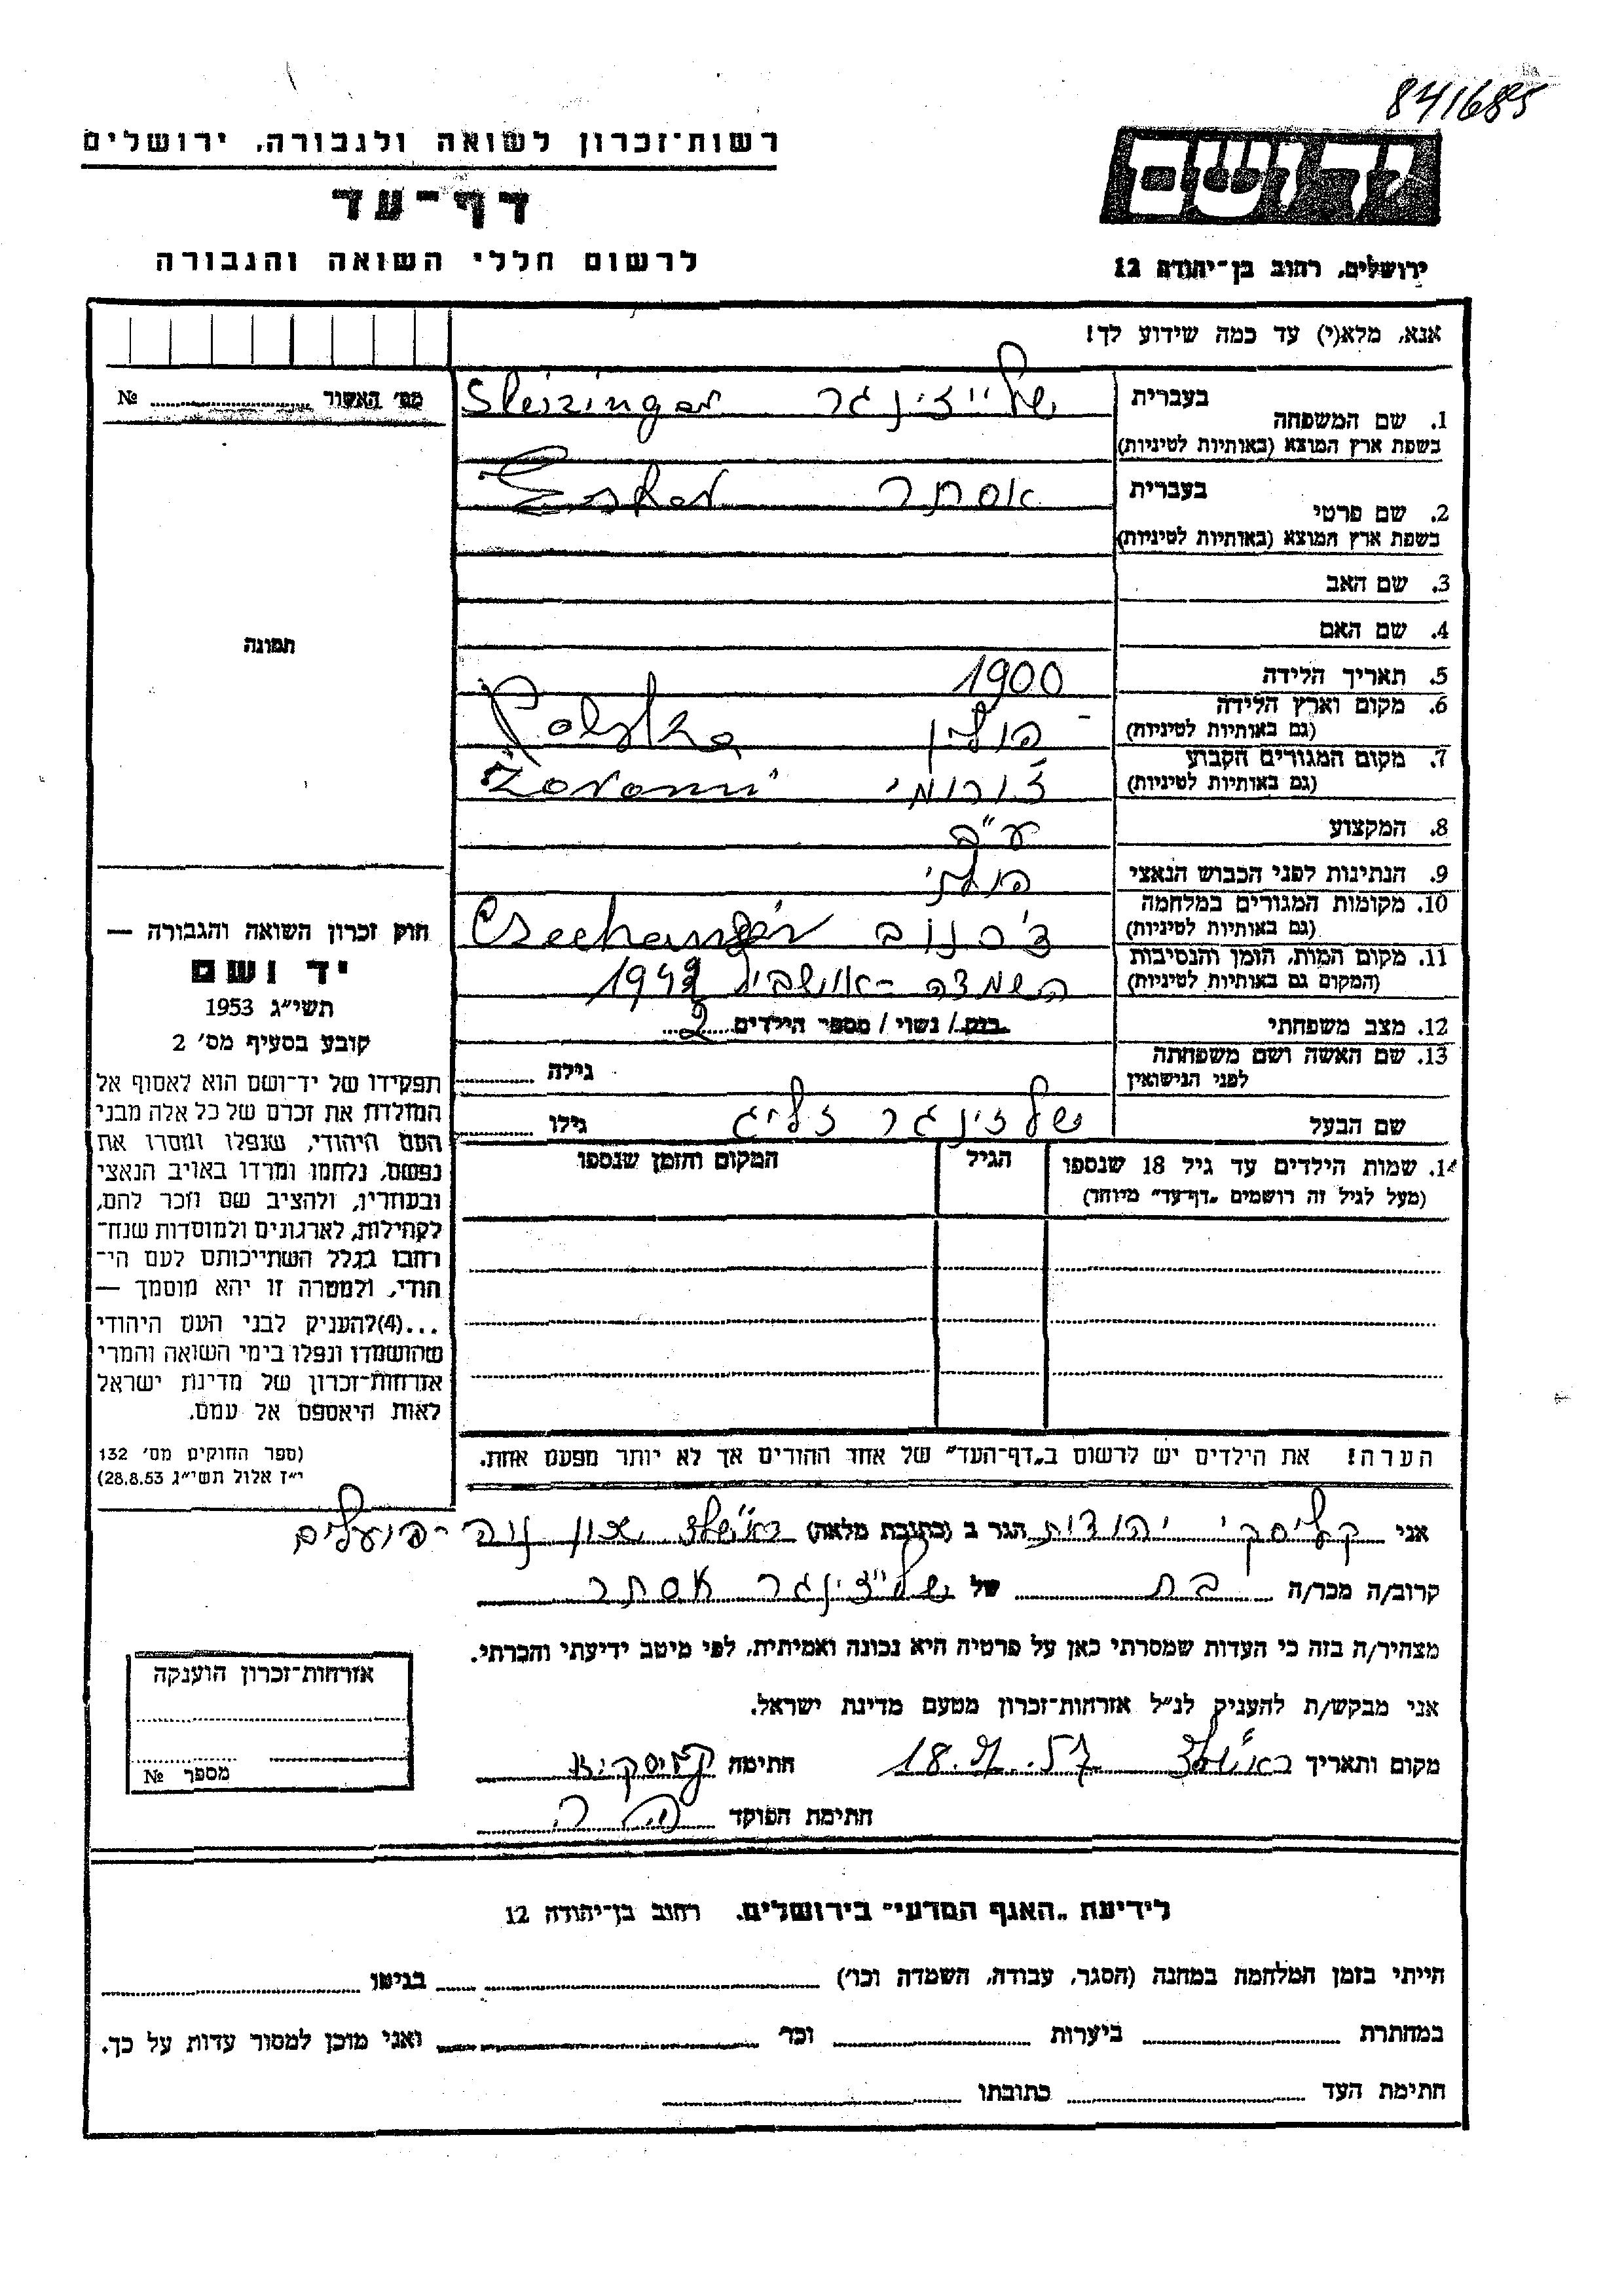 841685
רשות־זכרון לשואה ולגבורה, ירושלים
דף־עד
לרשום חללי השואה והגבורה
ידושם
ירושלים, רחוב בן־יהודה 12
אנא, מלא(י) עד כמה שידוע לך!
מס׳ האשור № 
1. שם המשפחה בעברית שלייזינגר Sleizinger
בשפת ארץ המוצא (באותיות לטיניות)
2. שם פרטי בעברית אסתר Ester
בשפת ארץ המוצא (באותיות לטיניות)
3. שם האב
4. שם האם
תמונה
5. תאריך הלידה 1900
6. מקום וארץ הלידה (גם באותיות לטיניות) פולין Polska
7. מקום המגורים הקבוע (גם באותיות לטיניות) ז'ורומי
8. המקצוע עק"ב
9. הנתינות לפני הכבוש הנאצי פולני
10. מקומות המגורים במלחמה (גם באותיות לטיניות) צ'כנוב
11. מקום המות, הזמן והנסיבות (המקום גם באותיות לטיניות) השמדה - אושביץ 1942
12. מצב משפחתי רווק / נשוי / מספר הילדים 2
13. שם האשה ושם משפחתה לפני הנישואין גילה
שם הבעל שלזינגר זליג גילו
14. שמות הילדים עד גיל 18 שנספו (מעל לגיל זה רושמים „דף־עד״ מיוחד) הגיל המקום והזמן שנספו
הערה! את הילדים יש לרשום ב„דף־העד״ של אחד ההורים אך לא יותר מפעם אחת.
חוק זכרון השואה והגבורה —
יד ושם
תשי״ג 1953
קובע בסעיף מס׳ 2
תפקידו של יד־ושם הוא לאסוף אל
המולדת את זכרם של כל אלה מבני
העם היהודי, שנפלו ומסרו את
נפשם, נלחמו ומרדו באויב הנאצי
ובעוזריו, ולהציב שם וזכר להם,
לקהילות, לארגונים ולמוסדות שנח־
רבו בגלל השתייכותם לעם הי־
הודי, ולמטרה זו יהא מוסמך —
...(4)להעניק לבני העם היהודי
שהושמדו ונפלו בימי השואה והמרי
אזרחות־זכרון של מדינת ישראל
לאות היאספם אל עמם.
(ספר החוקים מס׳ 132
י״ז אלול תשי״ג 28.8.53)
אני קליסקי יהודית הגר ב (כתובת מלאה) ראשל"צ שכון נוה - פועלים
קרוב/ה מכר/ה בת של שלייזינגר אסתר
מצהיר/ה בזה כי העדות שמסרתי כאן על פרטיה היא נכונה ואמיתית, לפי מיטב ידיעתי והכרתי.
אני מבקש/ת להעניק לנ״ל אזרחות־זכרון מטעם מדינת ישראל.
מקום ותאריך ראשל"צ חתימה
חתימת הפוקד
אזרחות־זכרון הוענקה
מספר №
לידיעת „האגף המדעי״ בירושלים. רחוב בן־יהודה 12
הייתי בזמן המלחמה במחנה (הסגר, עבודה, השמדה וכו׳) בגיטו
במחתרת ביערות וכו׳ ואני מוכן למסור עדות על כך.
חתימת העד כתובתו